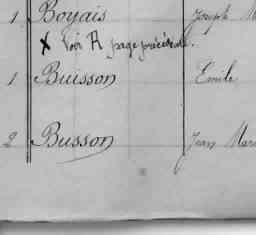 1 Boyais Joseph
x Voir A page précédente.
1 Buisson Emile
2 Busson Jean Mar